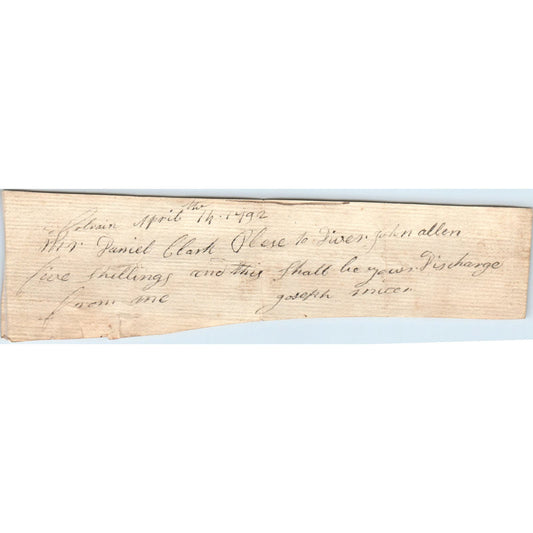 Colrain April the 14. 1792
Mr Daniel Clark Plese to Diver John allen
five shillings and this shall be your Discharge
from me Joseph